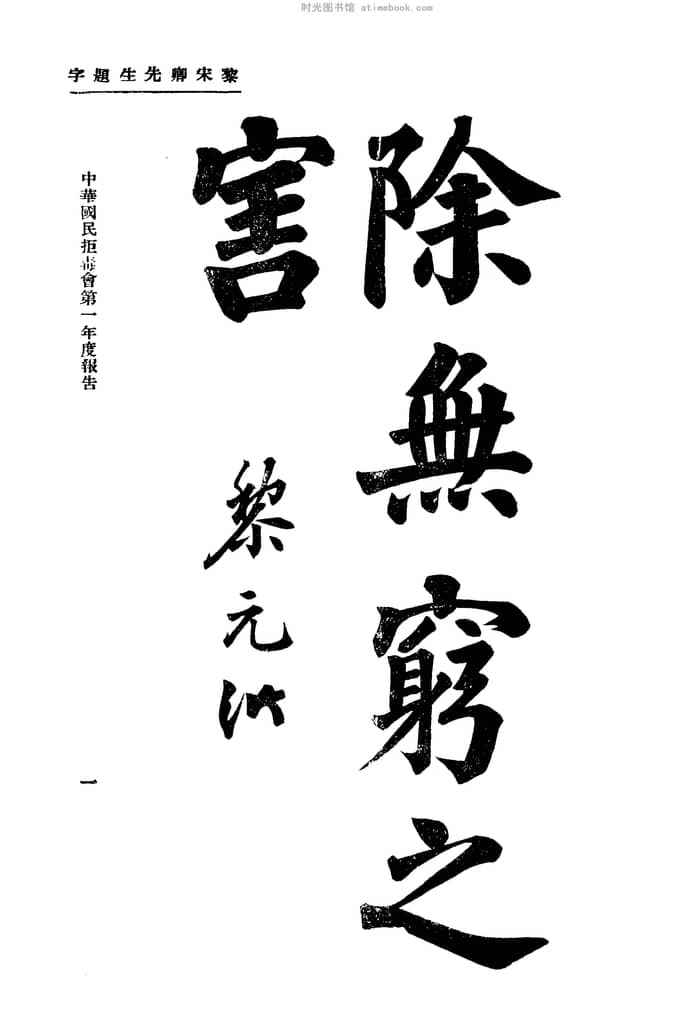 时光图书馆 atimebook.com
黎宋卿先生題字
除無窮之
害
黎元洪
中華國民拒毒會第一年度報告
一